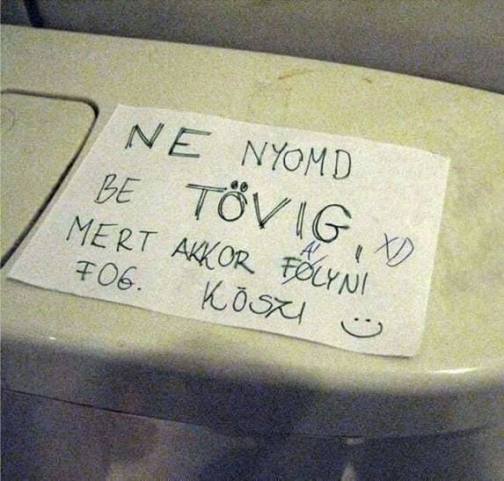 NE NYOMD
BE TÖVIG, XD
MERT AKKOR FOLYNI
FOG. KÖSZI :)